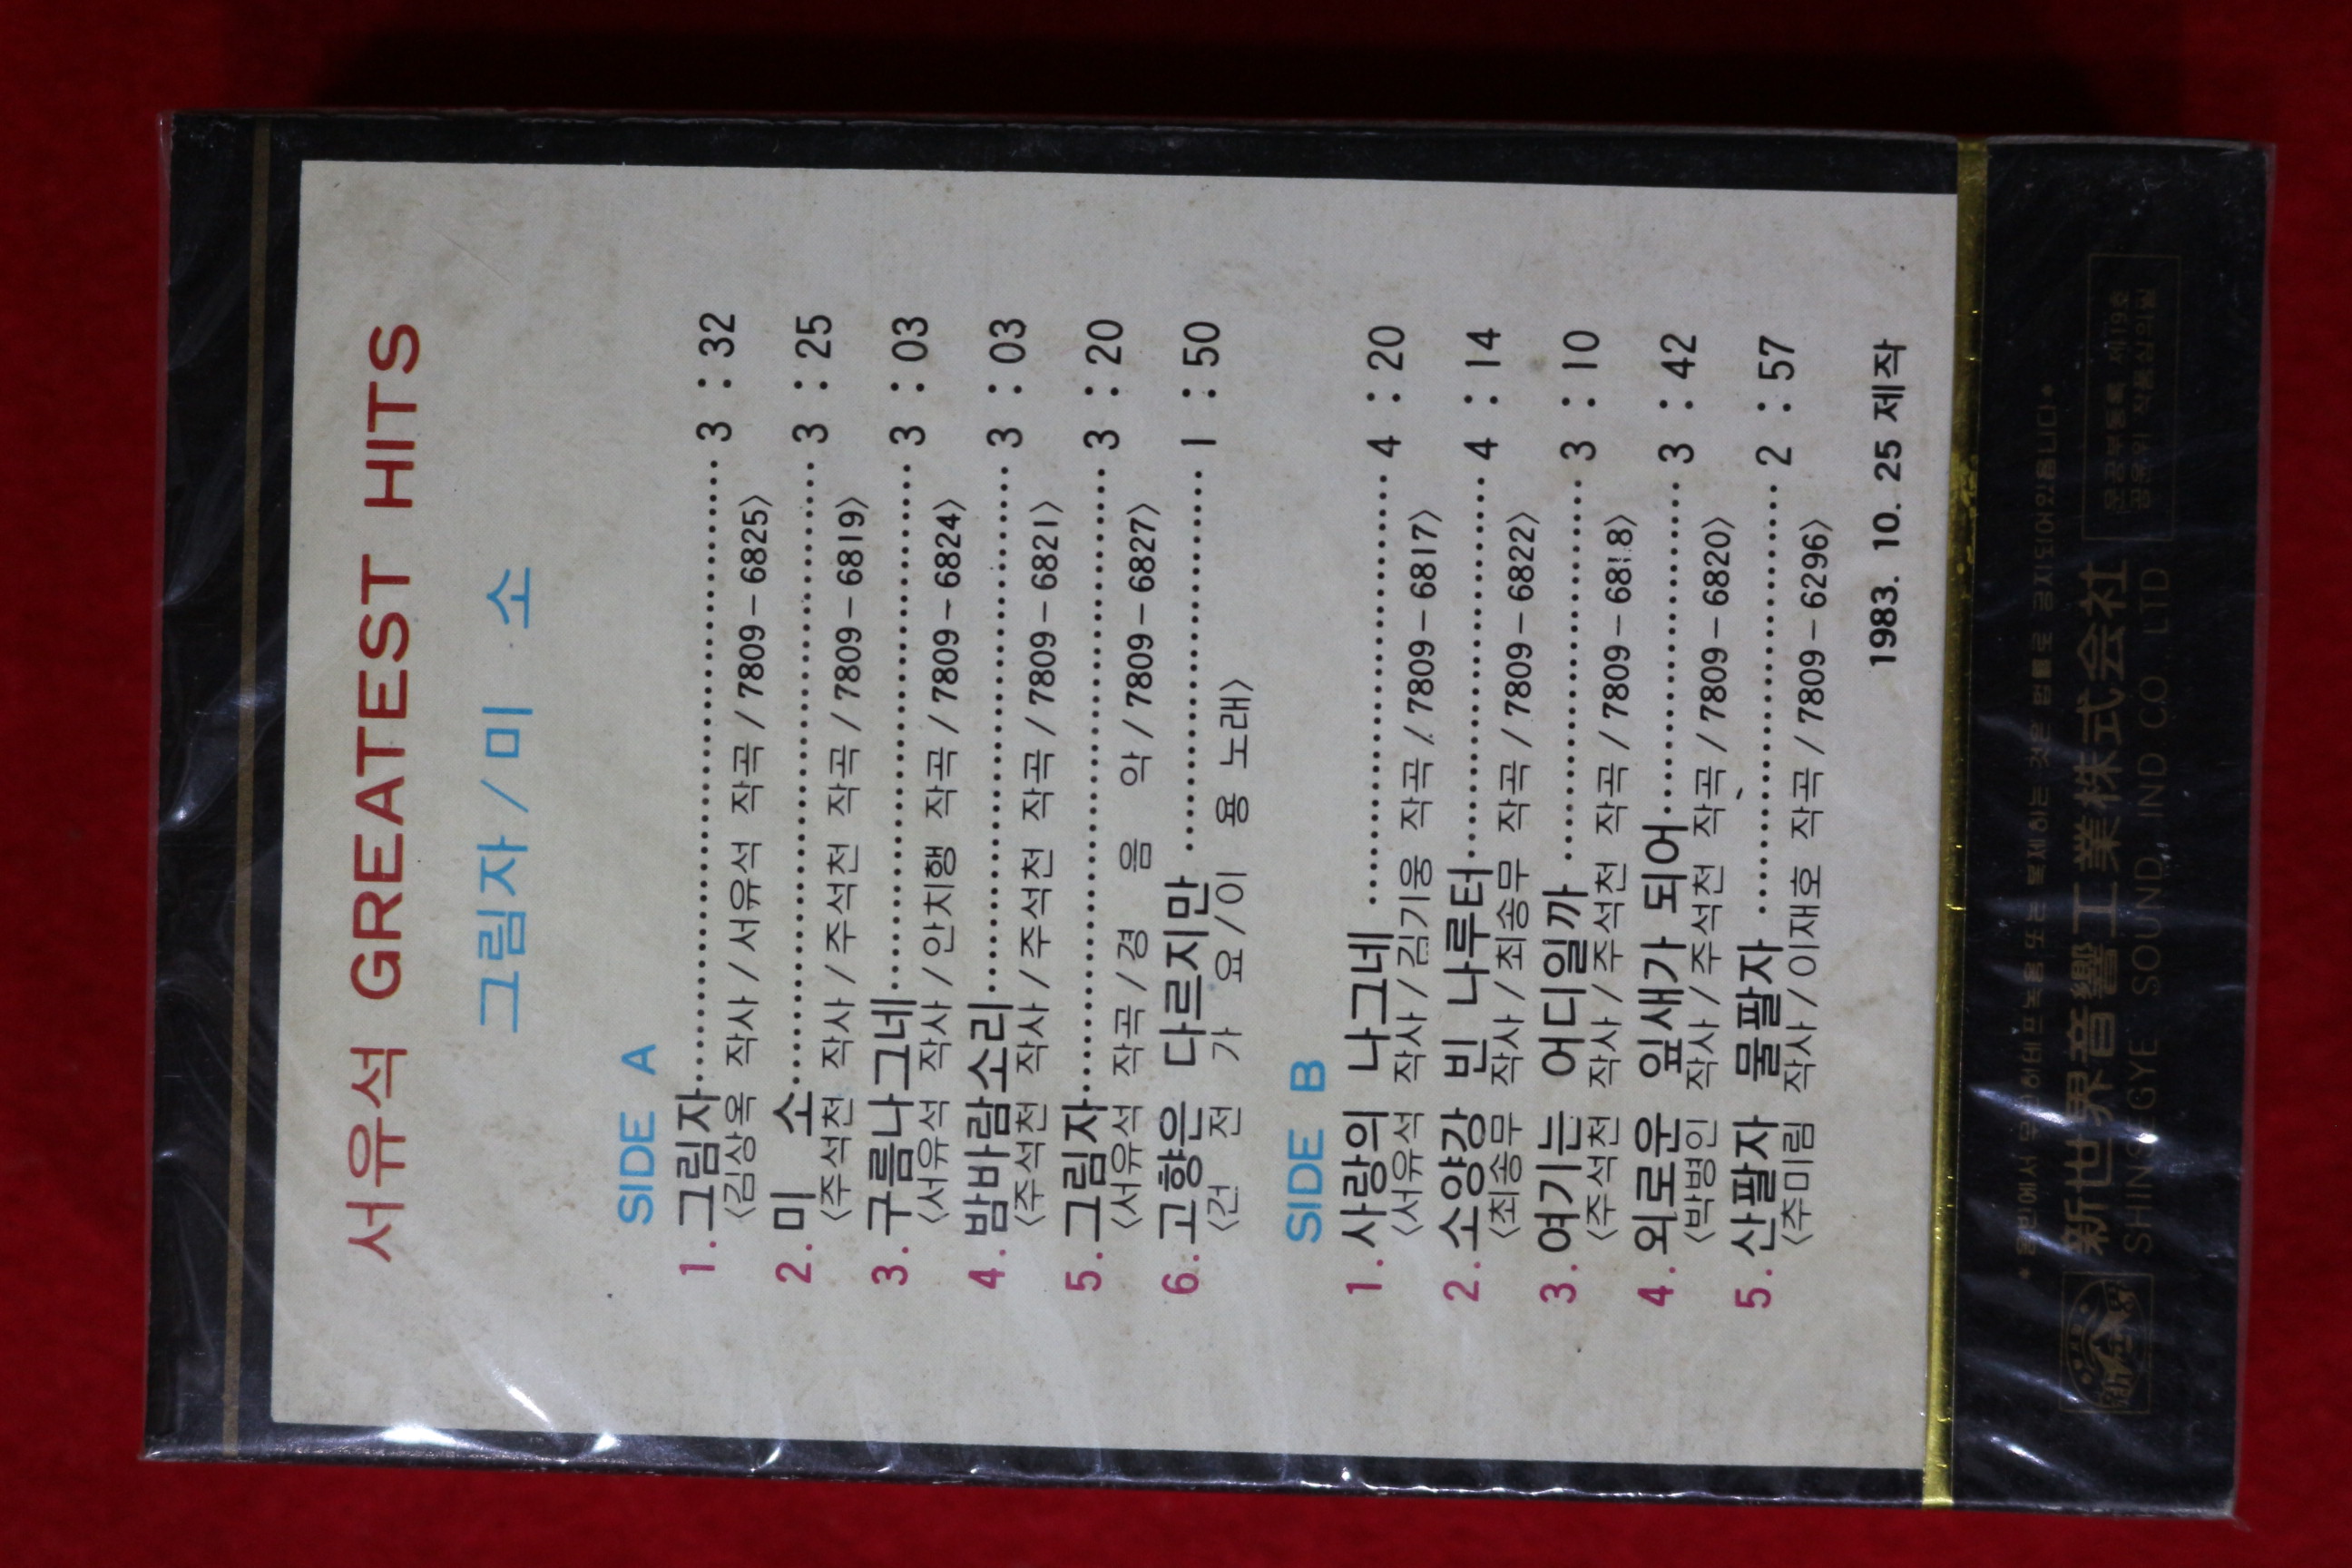 서유석 GREATEST HITS
그림자/미 소
SIDE A
1. 그림자 3 : 32
〈김상옥 작사/서유석 작곡/7809－6825〉
2. 미 소 3 : 25
〈주석천 작사/주석천 작곡/7809－6819〉
3. 구름나그네 3 : 03
〈서유석 작사/안치행 작곡/7809－6824〉
4. 밤바람소리 3 : 03
〈주석천 작사/주석천 작곡/7809－6821〉
5. 그림자 3 : 20
〈서유석 작곡/경 음 악/7809－6827〉
6. 고향은 다르지만 1 : 50
〈건 전 가 요/이 용 노래〉
SIDE B
1. 사랑의 나그네 4 : 20
〈서유석 작사/김기웅 작곡/7809－6817〉
2. 소양강 빈 나루터 4 : 14
〈최송무 작사/최송무 작곡/7809－6822〉
3. 여기는 어디일까 3 : 10
〈주석천 작사/주석천 작곡/7809－6818〉
4. 외로운 잎새가 되어 3 : 42
〈박병인 작사/주석천 작곡/7809－6820〉
5. 산팔자 물팔자 2 : 57
〈추미림 작사/이재호 작곡/7809－6296〉
1983. 10. 25 제작
*음반에서 무단히 테프녹음 또는 복제하는 것은 법률로 금지되어있읍니다*
新世界音響工業株式会社
SHINSEGYE SOUND, IND CO LTD
문공부등록 제19호
공윤위 작품심의필